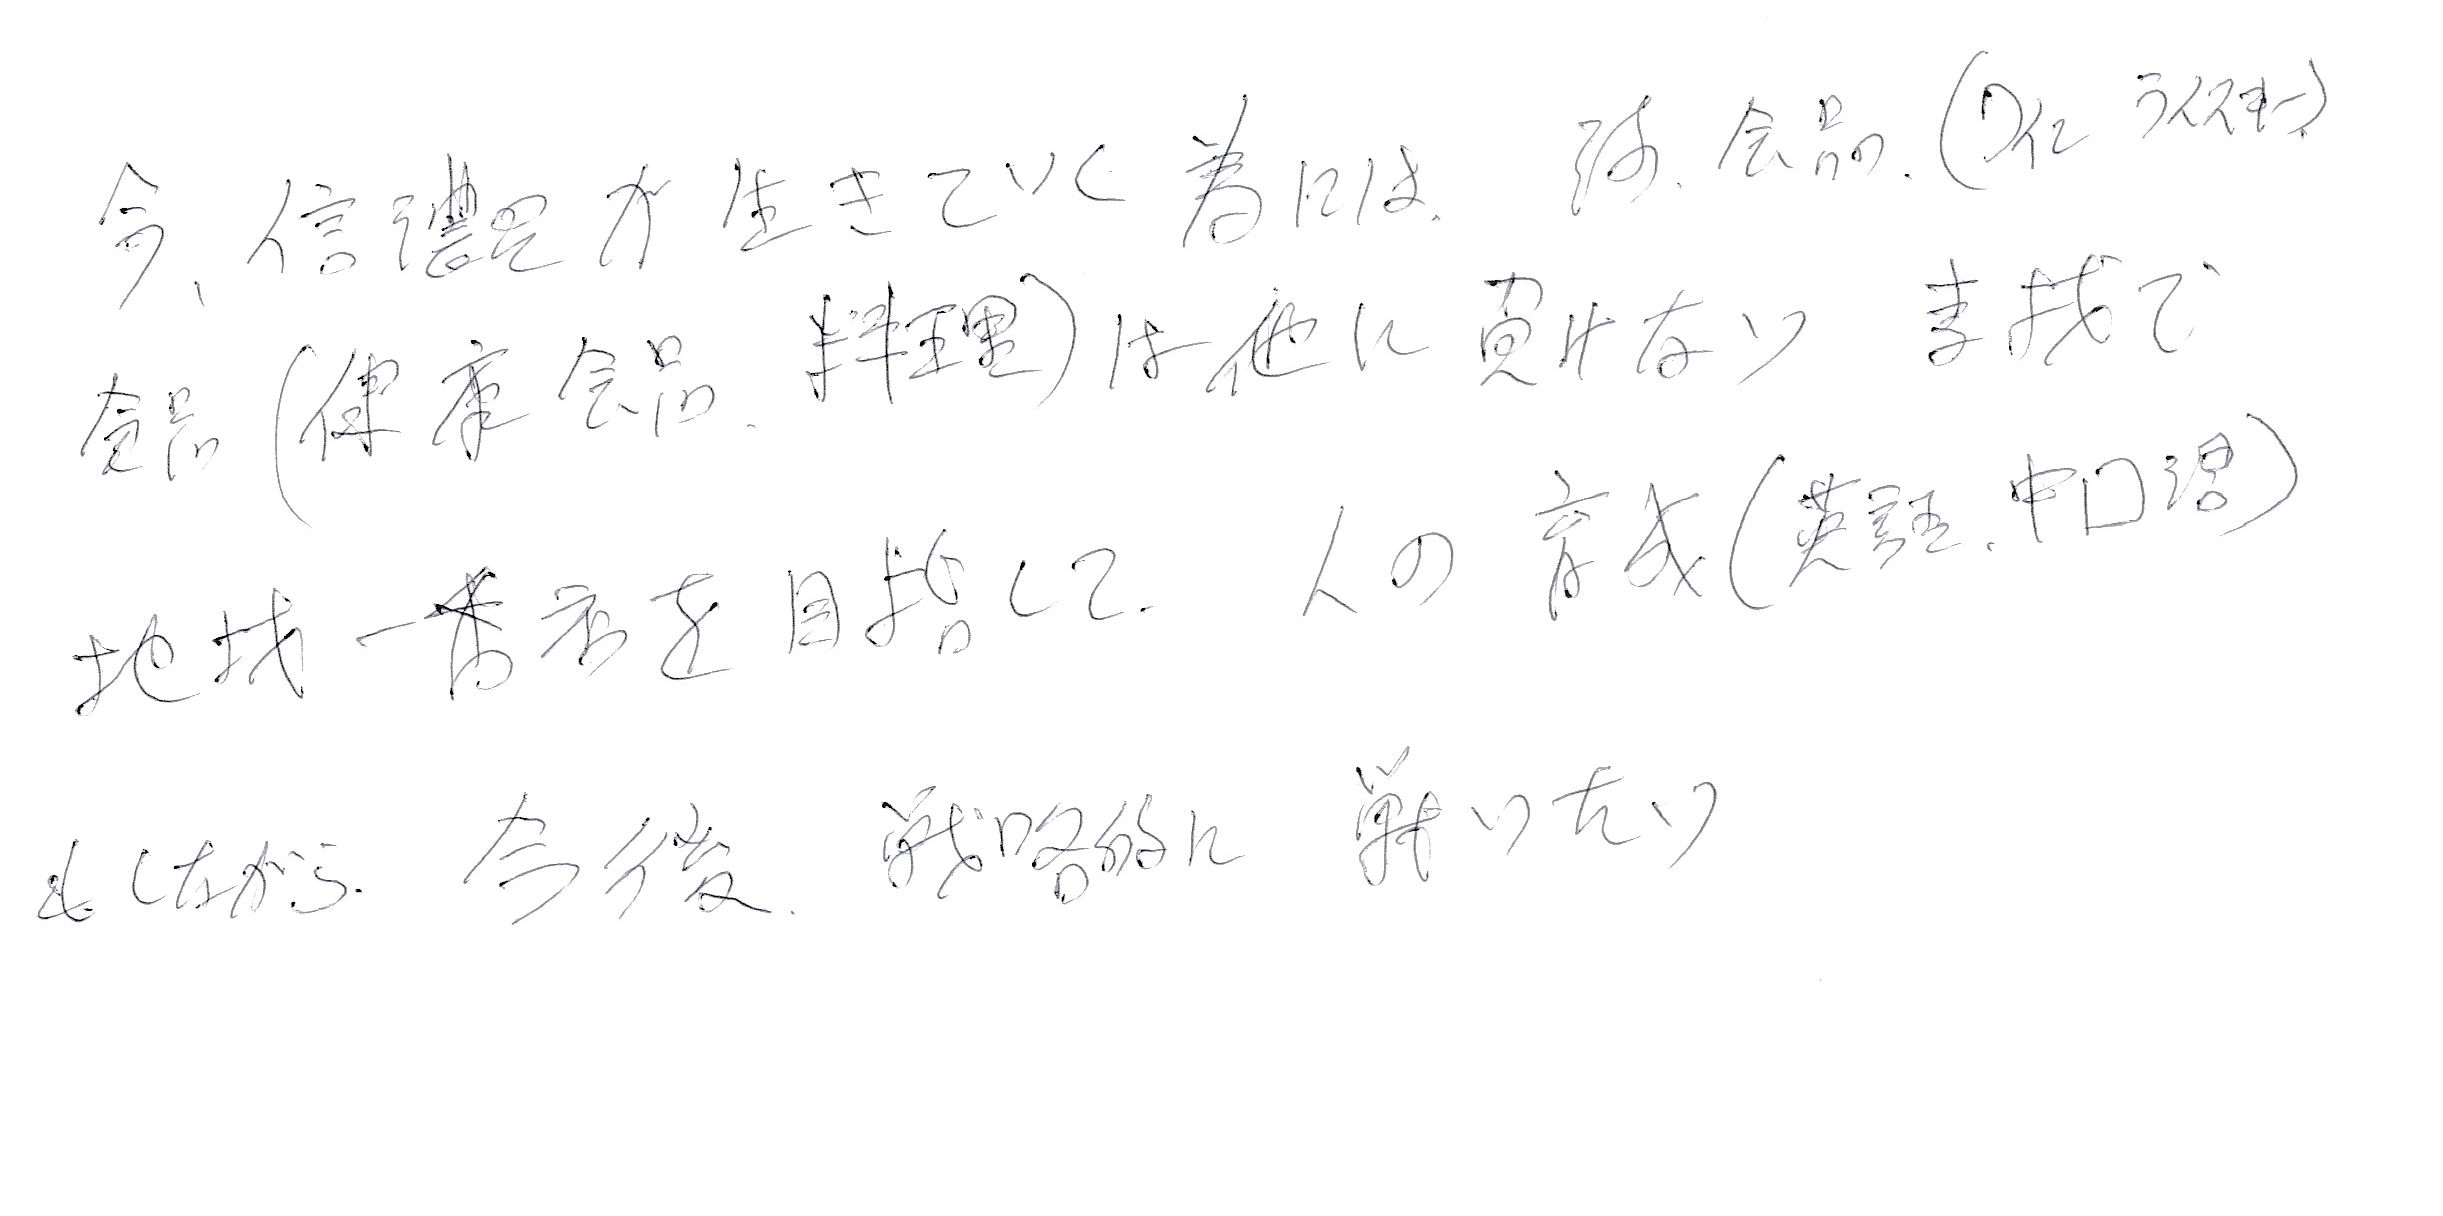 今、信濃屋が生きていく為には、酒、食品、(ワイン ウイスキー)
食品(健康食品、料理)は他に負けない素材で
地域一番店を目指して、人の育成(英語、中口語)
もしながら、今後、戦略的に戦いたい